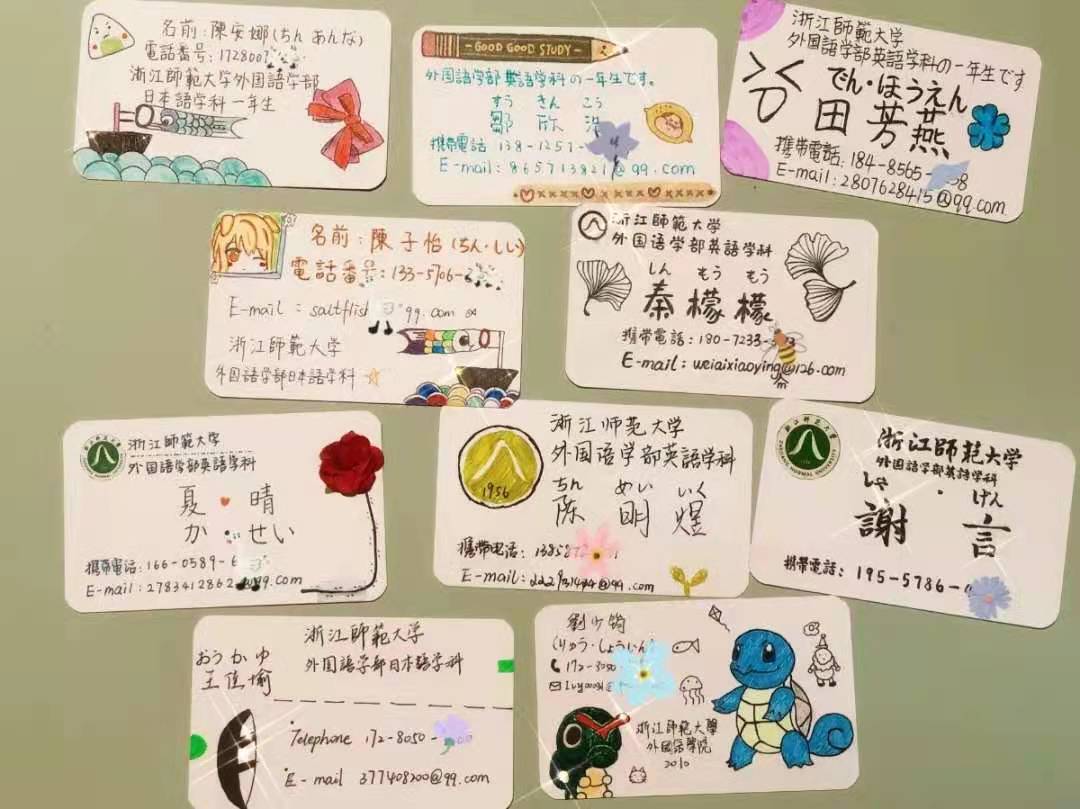 名前:陳安娜(ちん あんな)
電話番号:1728007
浙江師範大学外国語学部
日本語学科一年生
GOOD GOOD STUDY
外国語学部英語学科の一年生です。
すう きん こう
鄒 欣
携帯電話 138-1251-
E-mail: 865713821@qq.com
浙江師範大学
外国語学部英語学科の一年生です
でん・ほうえん
田芳燕
携帯電話:184-8565- 8
E-mail:2807628415@qq.com
名前:陳子怡(ちん・しい)
電話番号:133-5706-
E-mail: saltfish qq.com
浙江師範大学
外国語学部日本語学科
浙江師範大学
外国语学部英語学科
しん もう もう
秦 檬 檬
携帯電話:180-7233-
E-mail: weiaixiaoying@126.com
浙江師範大学
外国語学部英語学科
夏 晴
か せい
携帯電话:166-0589-6
E-mail:2783412862 @qq.com
浙江师范大学
外国语学部英語学科
ちん めい いく
陈 明 煜
1956
携帯电话:
E-mail: @qq.com
浙江師範大学
外国語学部英语学科
しゃ げん
謝 言
携帯電話:195-5786-
浙江師範大学
外国語学部日本語学科
おうかゆ
王佳愉
Telephone 172-8050- 00
E-mail 377408200@qq.com
劉少筠
(りゅう・しょういん)
172-8050
浙江師範大學
外國語學院
2010